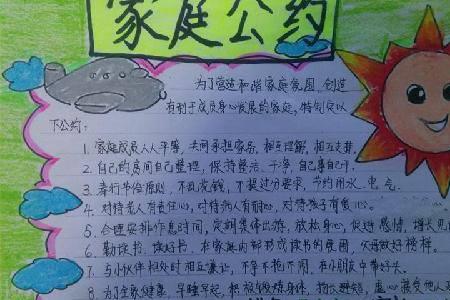 家庭公约
为了营造和谐家庭氛围,创造
有利于成员身心发展的家庭,特制定以
下公约:
1. 家庭成员人人平等,共同承担家务,相互理解,相互支持.
2. 自己的房间自己整理,保持整洁、干净,自己事自己干.
3. 奉行节俭原则,不乱花钱,不提过分要求,节约用水、电、气.
4. 对待老人有责任心,对待病人有耐心,对待孩子有爱心.
5. 合理安排作息时间,定期集体出游,放松身心,促进感情,增长见
6. 勤读书、读好书,在家庭内部形成读书的氛围,父母做好榜样.
7. 与小伙伴相处时相互谦让,不争不抢不闹,在小朋友中带好头.
8. 为了全家健康,早睡早起,积极锻炼身体,